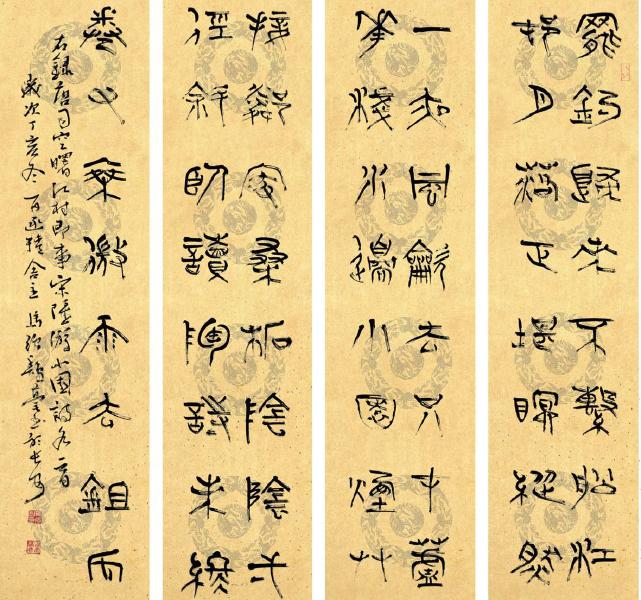 罷釣歸來不繫船江
邨月落正堪眠縱然
一夜風吹去只才蘆
華淺水邊小園煙艸
接鄰家桑柘陰陰弌
徑斜臥讀陶詩未終
卷又乘微雨去鉏瓜
右錄唐司空曙江村即事宋陸游小園詩各一首
歲次丁亥冬百舍主於長安